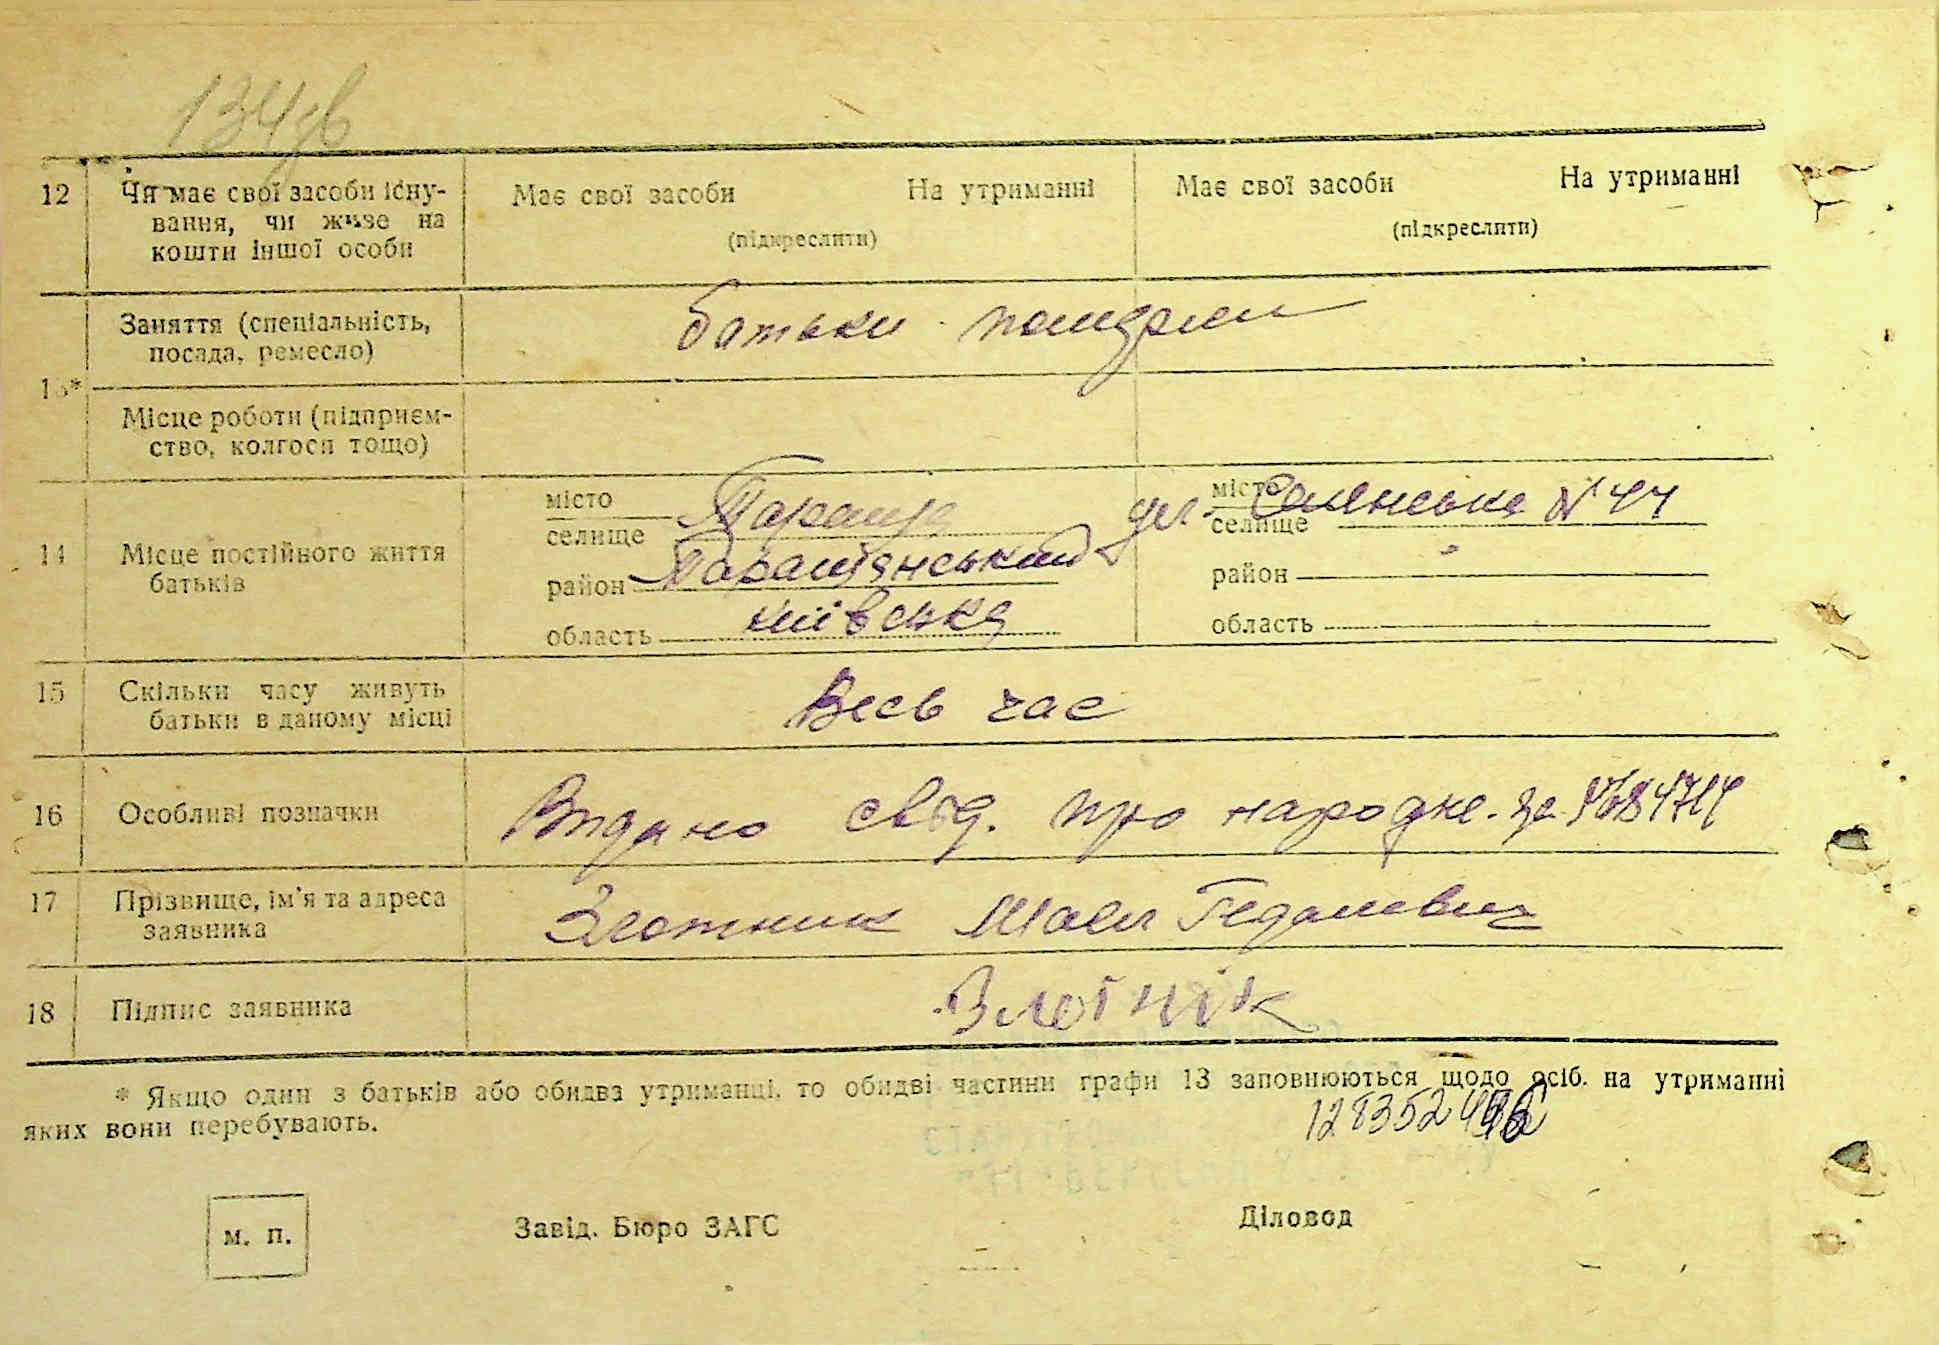 134зв
12 Чи має свої засоби існу- Має свої засоби На утриманні Має свої засоби На утриманні
вання, чи живе на (підкреслити) (підкреслити)
кошти іншої особи
Заняття (спеціальність, батьки померли
посада, ремесло)
13*
Місце роботи (підприєм-
ство, колгосп тощо)
14 Місце постійного життя
батьків
місто
селище Тараща
район Таращанський
область київська
місто ул. Селянська № 44
селище
район
область
15 Скільки часу живуть Весь час
батьки в даному місці
16 Особливі позначки Видано свід. про народже. за
17 Прізвище, ім'я та адреса Злотник Шаєл Гедалевич
заявника
18 Підпис заявника Злотнік
* Якщо один з батьків або обидва утриманці, то обидві частини графи 13 заповнюються щодо осіб, на утриманні
яких вони перебувають.
м. п. Завід. Бюро ЗАГС Діловод